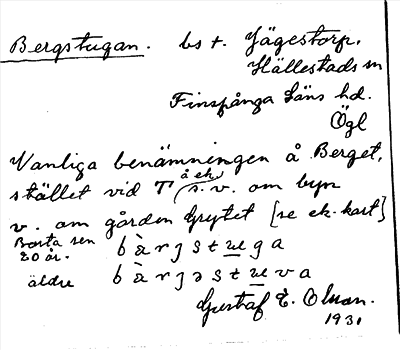 Bergstugan. bst. Jägestorp.
Hällestads sn
Finspånga Läns hd.
Ögl
Vanliga benämningen å Berget,
stället vid T (å ek.) s.v. om byn
v. om gården Grytet [se ek. kart]
Borta sen
20 år.
bàrjstuga
äldre bàrjəstuva
Gustaf E. Olsson.
1931